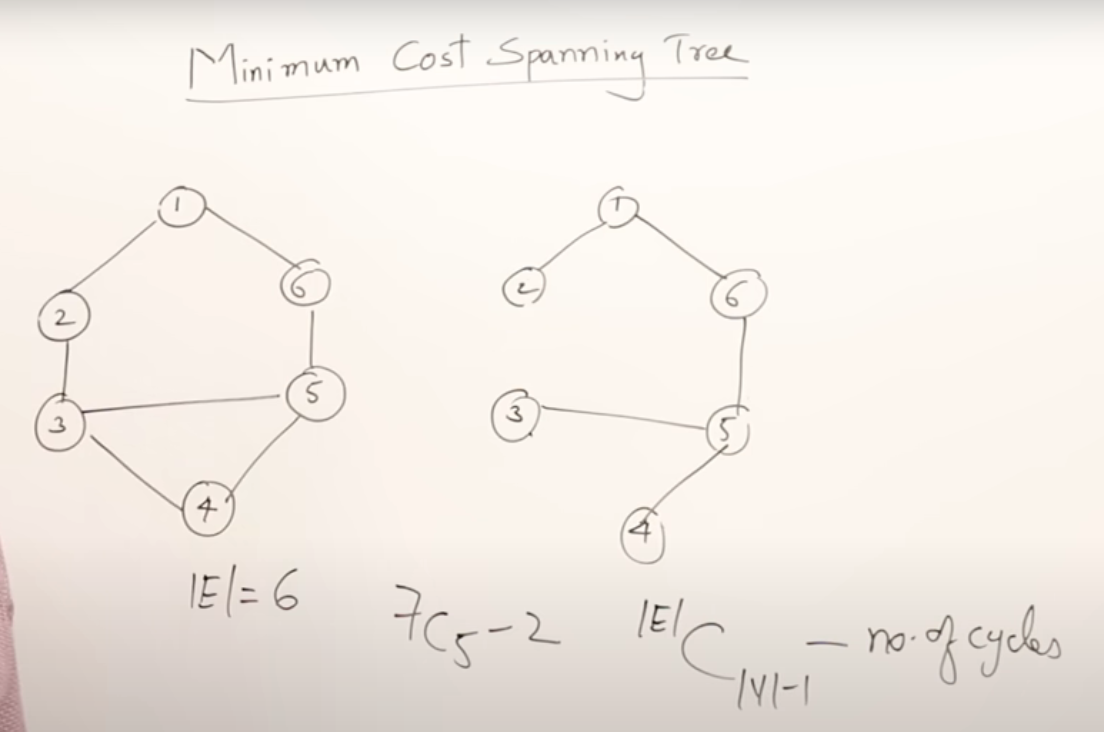 Minimum Cost Spanning Tree
1
1
2
6
2
6
3
5
3
5
4
4
|E|= 6
7C5-2
|E|C|V|-1 - no. of cycles